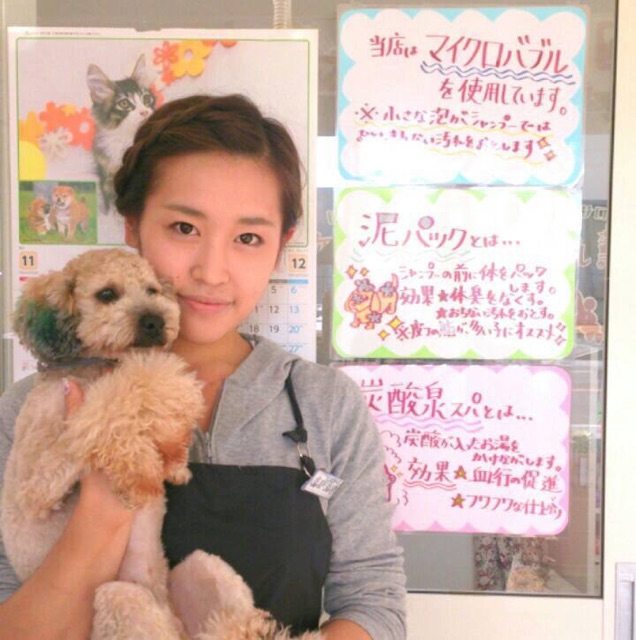 当店は マイクロバブル
を使用しています。
※小さな泡がシャンプーでは
おとしきれない汚れをおとします
泥パックとは…
シャンプーの前に体をパック
します。
効果★体臭をなくす。
★おちない汚れをおとす。
炭酸泉スパとは…
炭酸が入ったお湯を
かけながします。
効果★血行の促進
★フワフワな仕上り
11
12
5 6
12 13
18 19 20